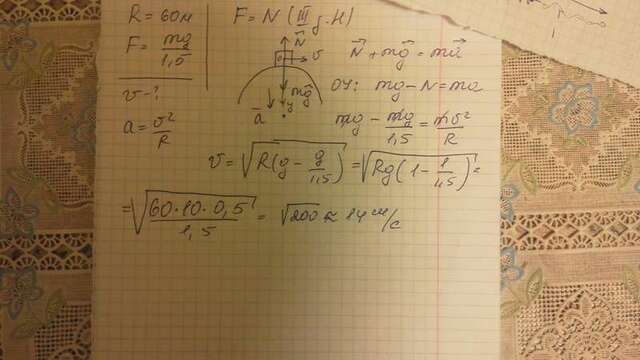 R = 60м
F = mg/1,5
v - ?
a = v²/R
F = N (III з. Н)
N
v
mg
a
y
N + mg = ma
OY: mg - N = ma
mg - mg/1,5 = mv²/R
v = √R(g - g/1,5) = √Rg(1 - 1/1,5) =
= √60·10·0,5/1,5 = √200 ≈ 14 м/с